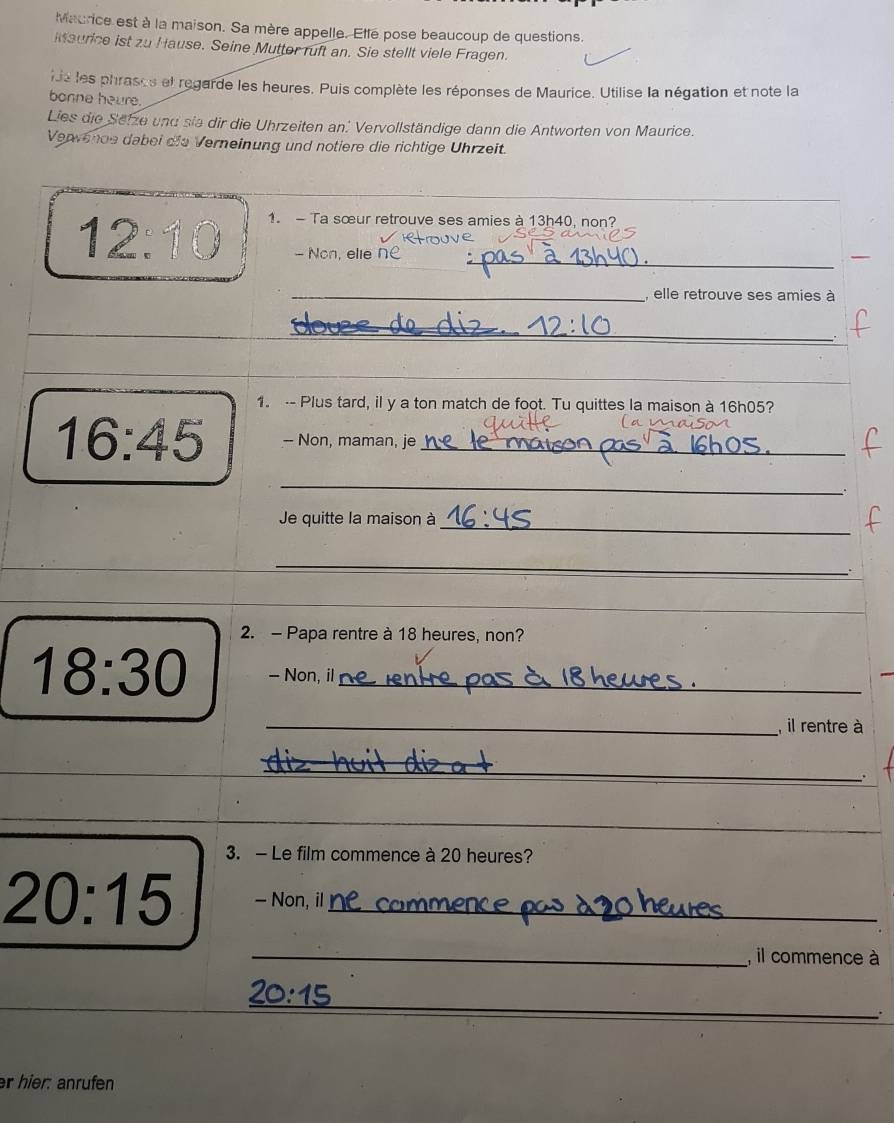 Maurice est à la maison. Sa mère appelle. Elle pose beaucoup de questions.
Maurice ist zu Hause. Seine Mutter ruft an. Sie stellt viele Fragen.
les phrases et regarde les heures. Puis complète les réponses de Maurice. Utilise la négation et note la
bonne heure.
Lies die Sätze und sieh dir die Uhrzeiten an. Vervollständige dann die Antworten von Maurice.
Verwende dabei die Verneinung und notiere die richtige Uhrzeit.
12:10
1. – Ta sœur retrouve ses amies à 13h40, non?
retrouve ses amies
– Non, elle ne pas à 13h40.
, elle retrouve ses amies à
de diz. 12:10 . f
1. -- Plus tard, il y a ton match de foot. Tu quittes la maison à 16h05?
quitte la maison
16:45
– Non, maman, je ne le maison pas à 16h05. f
.
Je quitte la maison à 16:45 f
.
2. – Papa rentre à 18 heures, non?
18:30
– Non, il ne rentre pas à 18 heures.
, il rentre à
diz huit diz at . f
3. – Le film commence à 20 heures?
20:15
– Non, il ne commence pas à 20 heures
, il commence à
20:15 .
er hier: anrufen